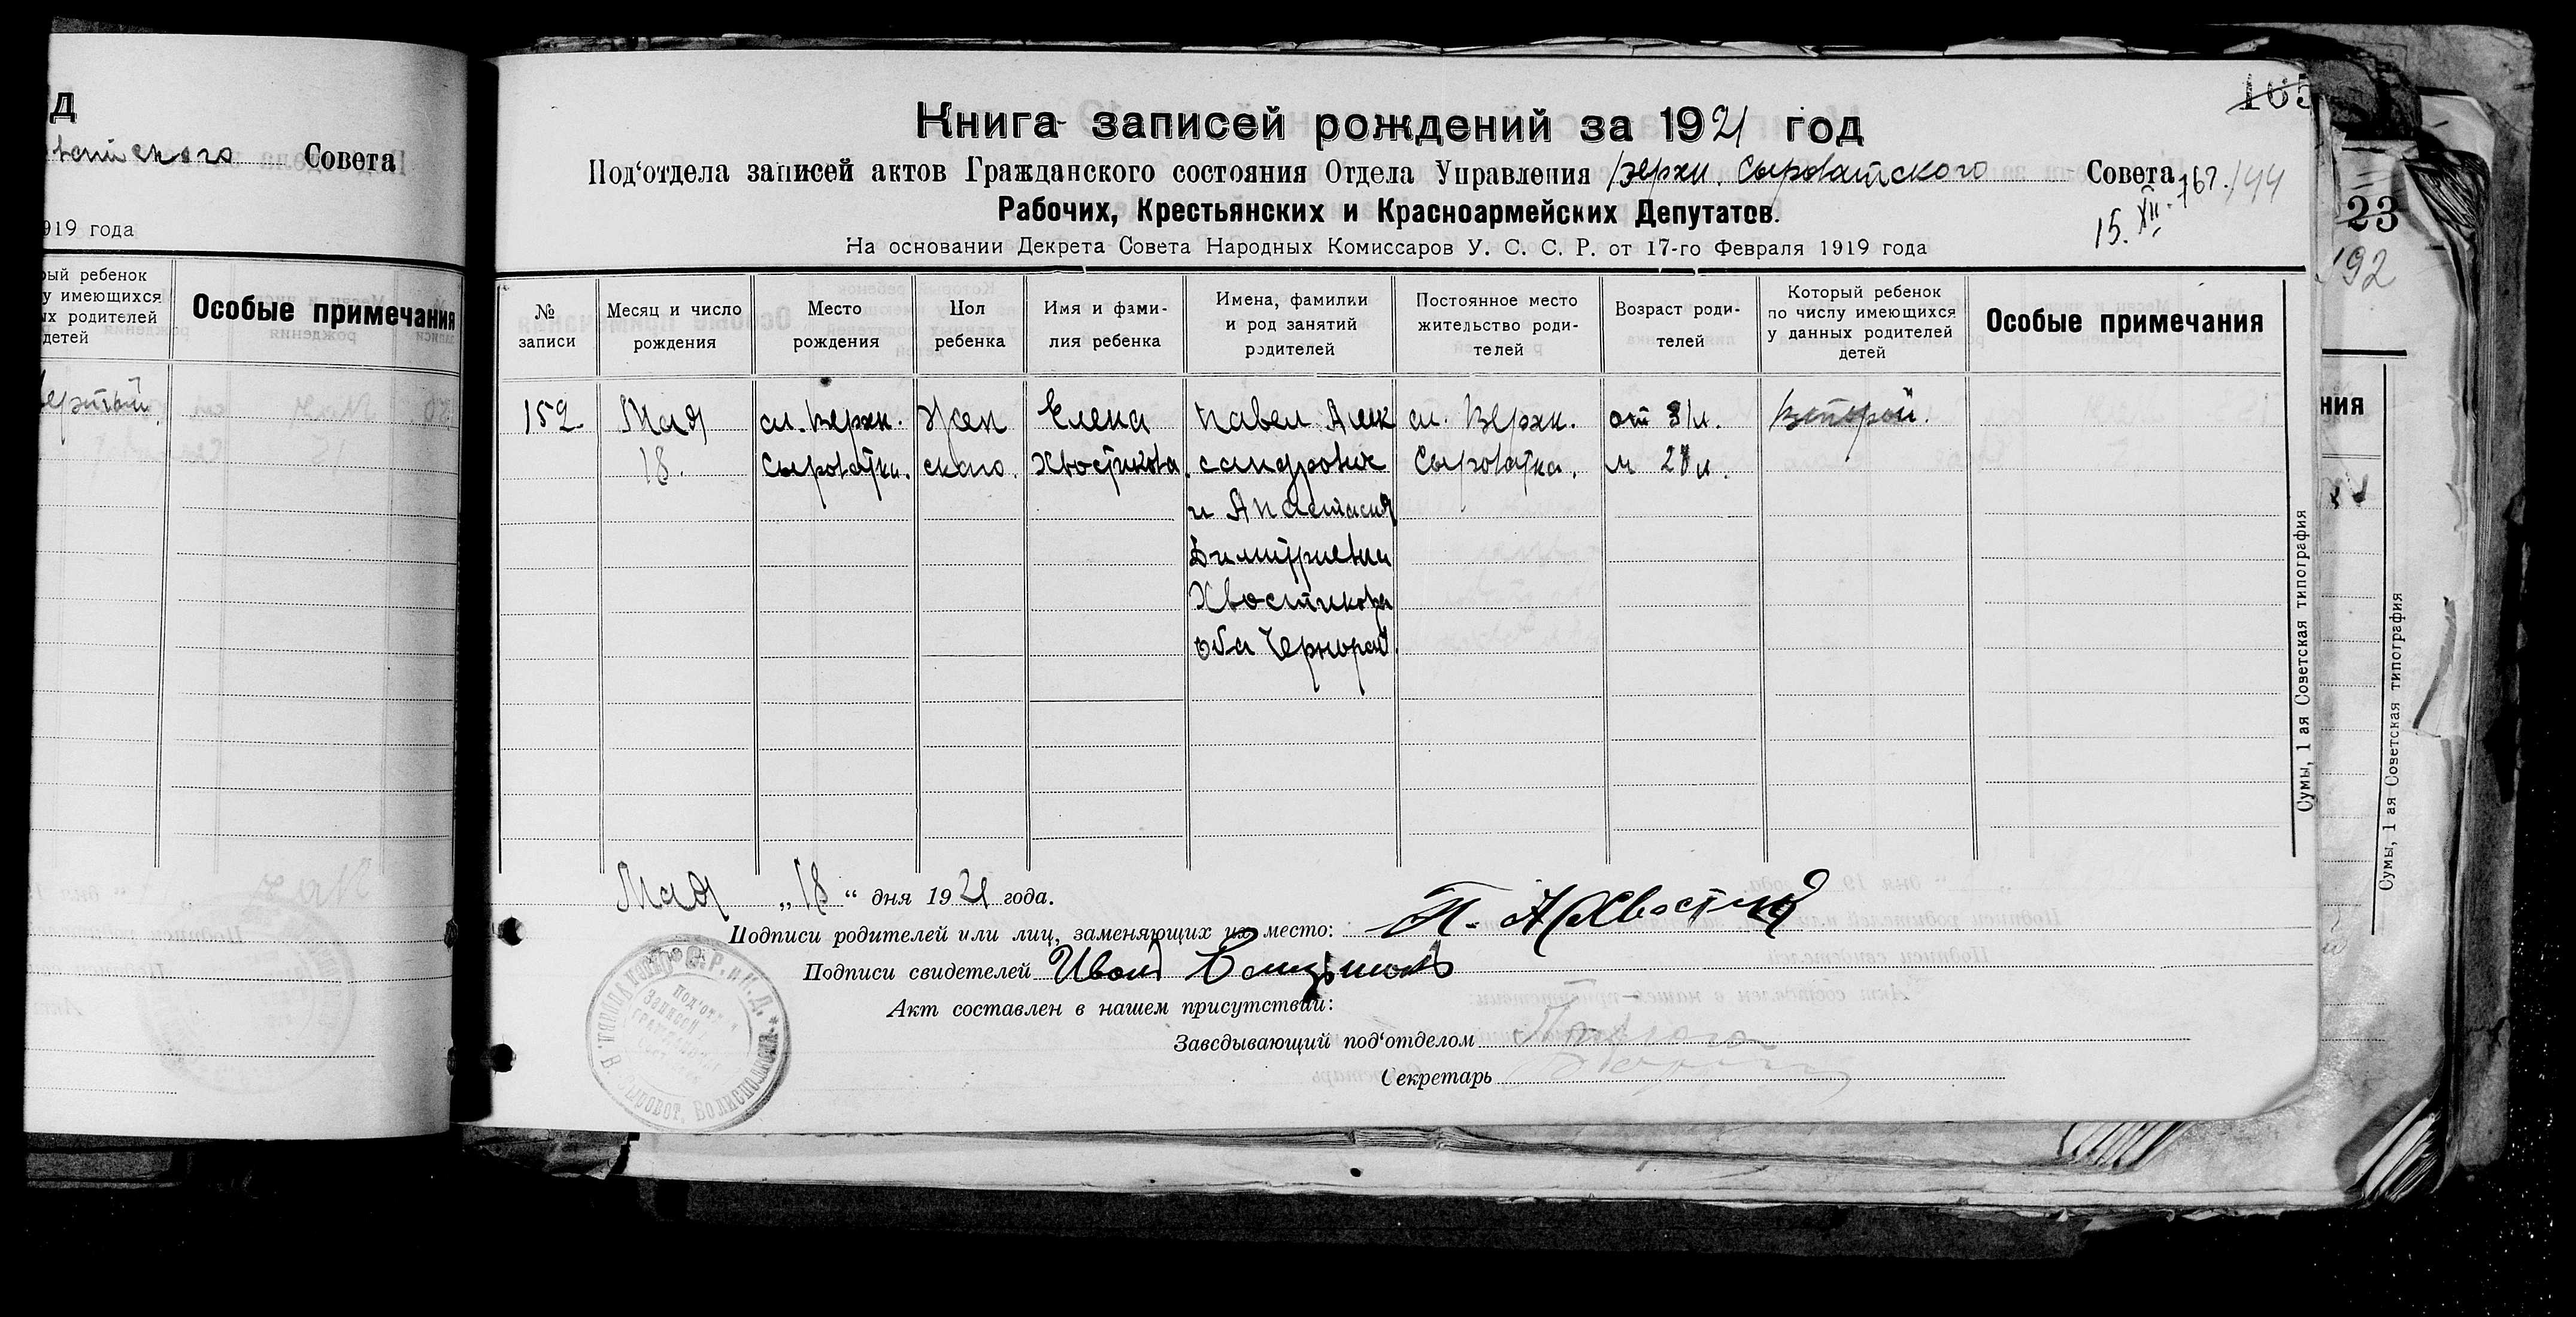 д
Совета
919 года
рый ребенок
у имеющихся
ых родителей
детей
Особые примечания
165
Книга записей рождений за 1921 год
Под‘отдела записей актов Гражданского состояния Отдела Управления Верхн. Сыроватского Совета
Рабочих, Крестьянских и Красноармейских Депутатов.
15. XII. 767./44
На основании Декрета Совета Народных Комиссаров У. С. С. Р. от 17-го Февраля 1919 года
№ записи
Месяц и число рождения
Место рождения
Пол ребенка
Имя и фами-
лия ребенка
Имена, фамилии
и род занятий
родителей
Постоянное место
жительство роди-
телей
Возраст роди-
телей
Который ребенок
по числу имеющихся
у данных родителей
детей
Особые примечания
152
Мая
18.
сл. Верхн.
Сыроватки.
Жен
ского.
Елена
Хвостикова.
Павел Алек
сандрович
и Анастасия
Димитриевна
Хвостикова
оба Чернораб.
сл. Верхн.
Сыроватка.
от 31л.
м 28л.
Второй.
Мая „18“ дня 1921 года.
Подписи родителей или лиц, заменяющих их место: П. А Хвостик
Подписи свидетелей Иван
Акт составлен в нашем присутствии:
Заведывающий под‘отделом
Секретарь
Сумы, 1 ая Советская типография
23
192
ния
Сумы, 1 ая Советская типография